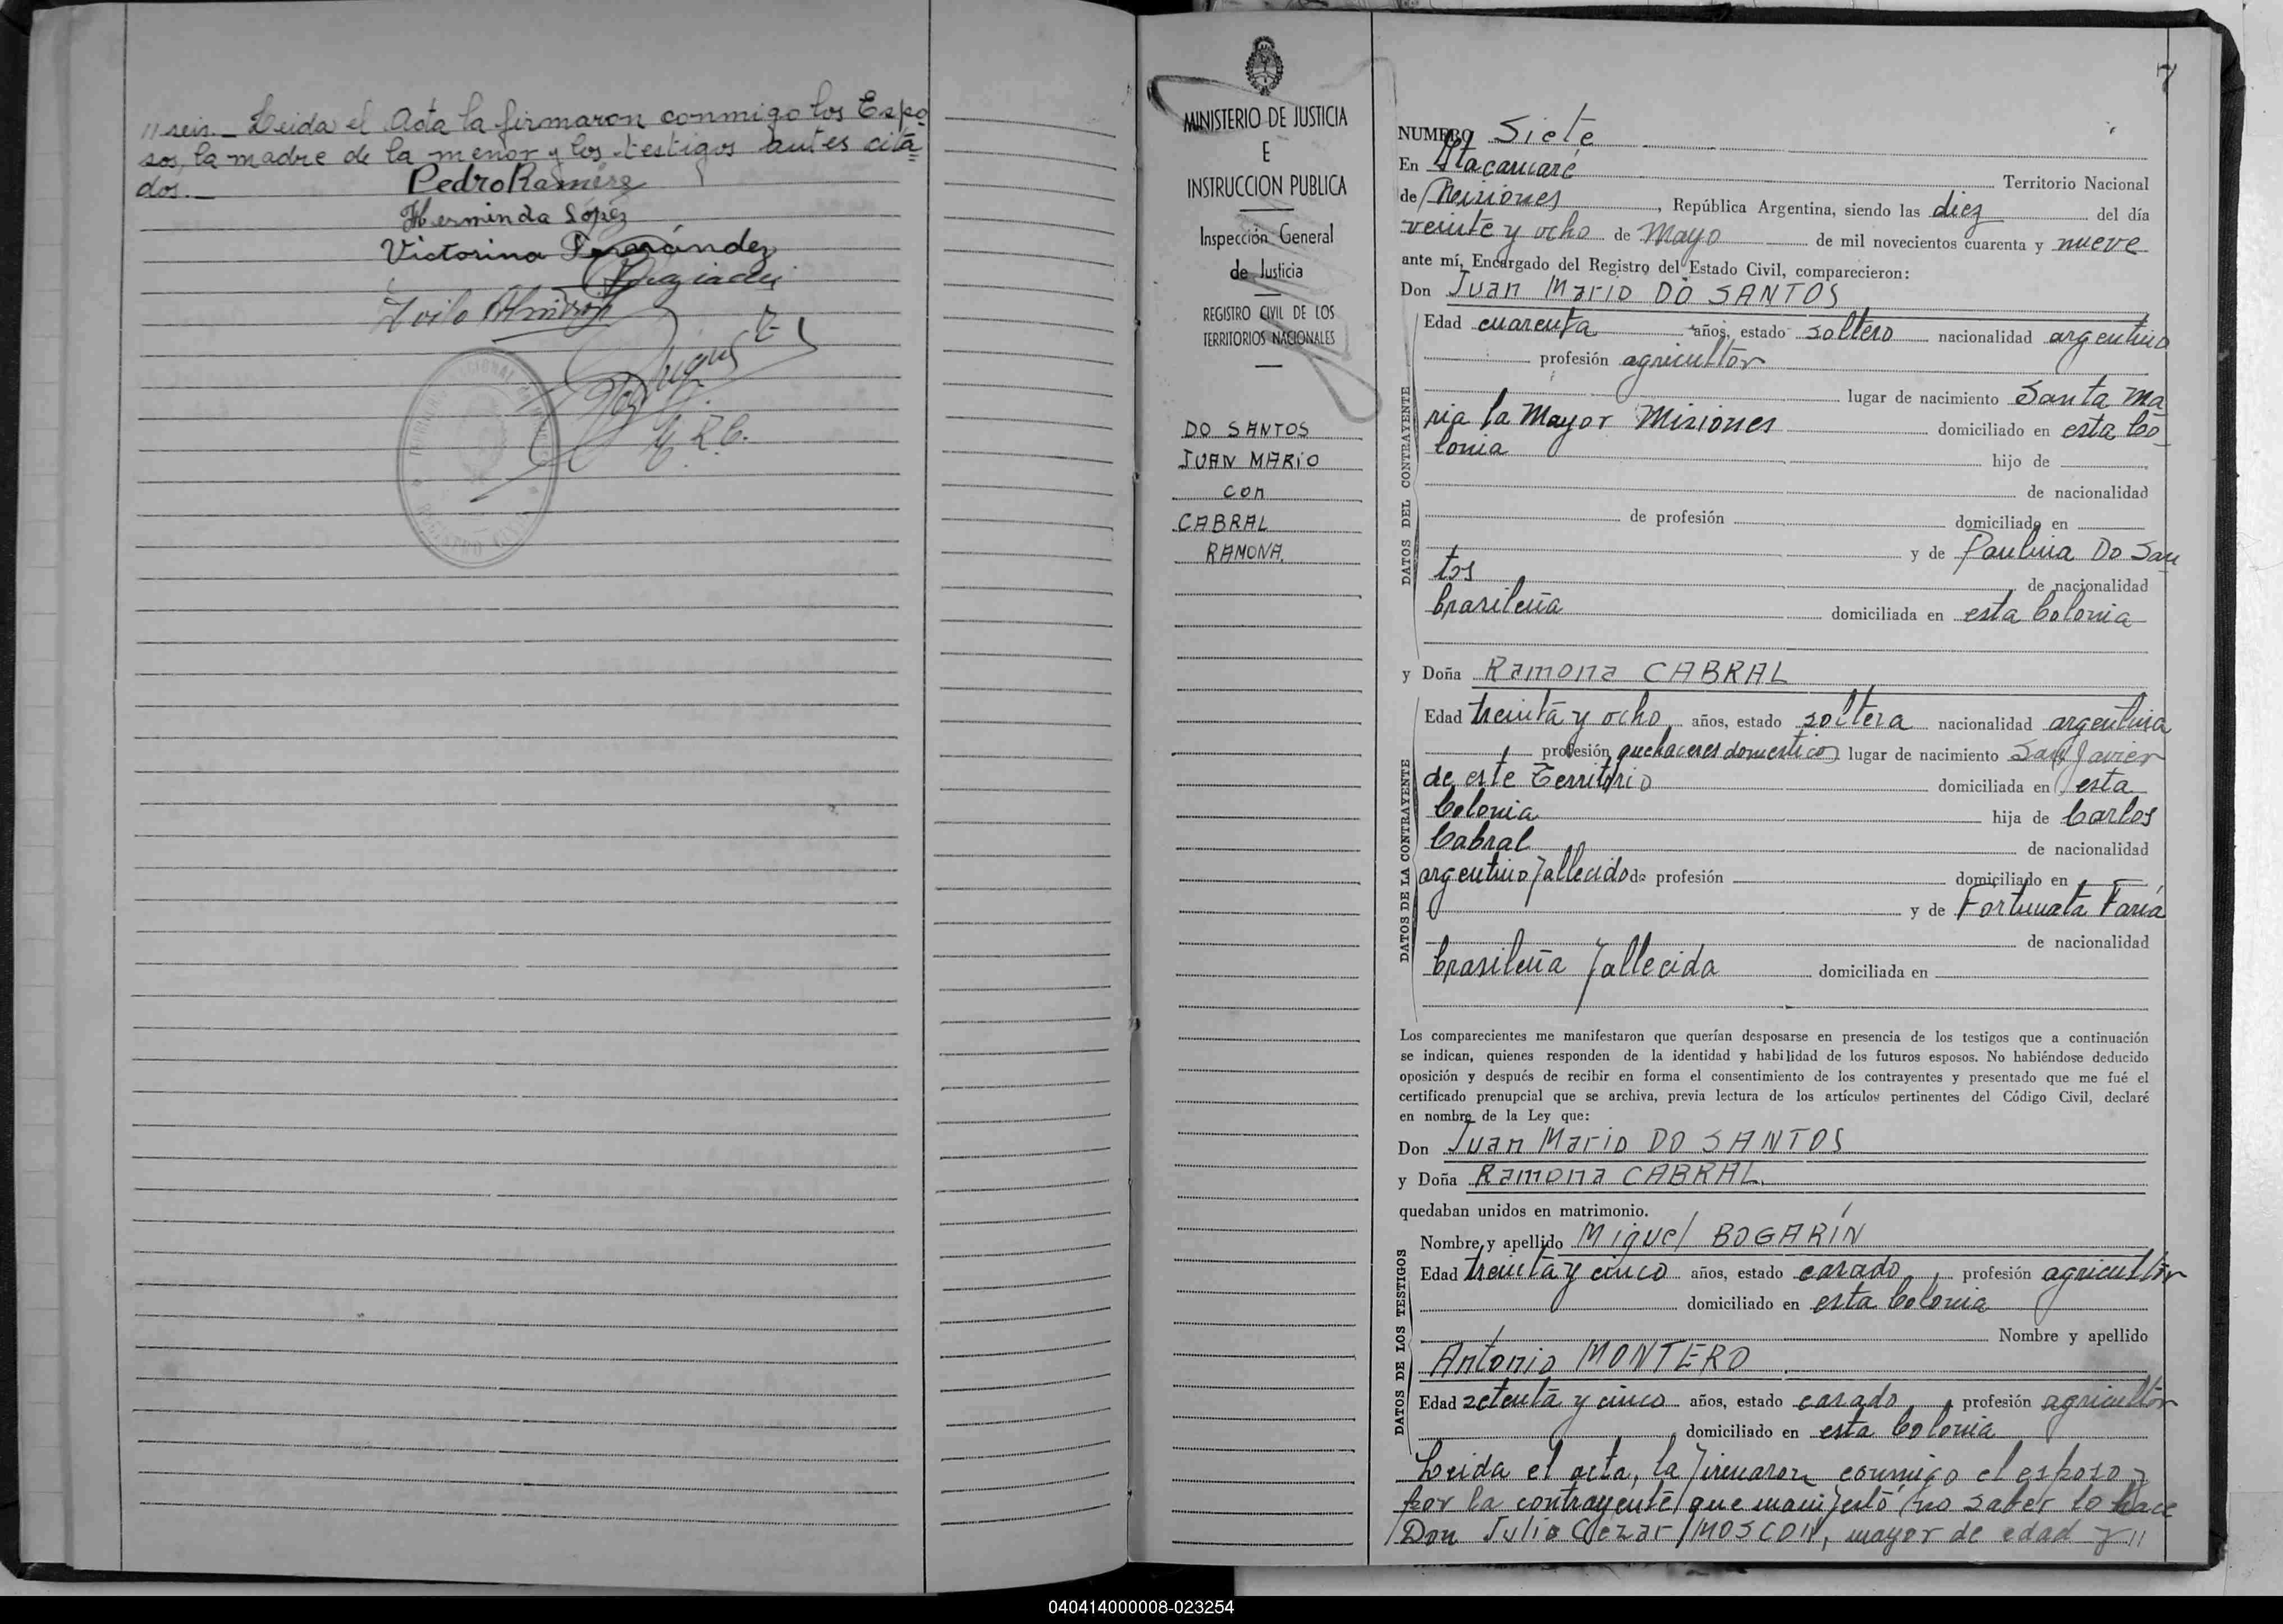 // seis._ Leida el Acta la firmaron conmigo los Espo-
sos, la madre de la menor y los testigos antes cita=
dos._
Pedro Ramírez
Herminda López
Victorina Fernández
MINISTERIO DE JUSTICIA
E
INSTRUCCION PUBLICA
Inspección General
de Justicia
REGISTRO CIVIL DE LOS
TERRITORIOS NACIONALES
DO SANTOS
JUAN MARIO
con
CABRAL
RAMONA.
7
NUMERO Siete
En Itacaruaré Territorio Nacional
de Misiones, República Argentina, siendo las diez del día
veinte y ocho de Mayo de mil novecientos cuarenta y nueve
ante mí, Encargado del Registro del Estado Civil, comparecieron:
Don Juan Mario DO SANTOS
DATOS DEL CONTRAYENTE
Edad cuarenta años, estado soltero nacionalidad argentino
profesión agricultor
lugar de nacimiento Santa Ma
ria la Mayor Misiones domiciliado en esta Co-
lonia hijo de
de nacionalidad
de profesión domiciliado en
y de Paulina Do San
tos de nacionalidad
brasileña domiciliada en esta Colonia
y Doña Ramona CABRAL
DATOS DE LA CONTRAYENTE
Edad treinta y ocho años, estado soltera nacionalidad argentina
profesión quehaceres domesticos lugar de nacimiento San Javier
de este Territorio domiciliada en esta
Colonia hija de Carlos
Cabral de nacionalidad
argentino fallecido de profesión domiciliado en
y de Fortunata Faria
de nacionalidad
brasileña fallecida domiciliada en
Los comparecientes me manifestaron que querían desposarse en presencia de los testigos que a continuación
se indican, quienes responden de la identidad y habilidad de los futuros esposos. No habiéndose deducido
oposición y después de recibir en forma el consentimiento de los contrayentes y presentado que me fué el
certificado prenupcial que se archiva, previa lectura de los artículos pertinentes del Código Civil, declaré
en nombre de la Ley que:
Don Juan Mario DO SANTOS
y Doña Ramona CABRAL.
quedaban unidos en matrimonio.
DATOS DE LOS TESTIGOS
Nombre y apellido Miguel BOGARÍN
Edad treinta y cinco años, estado casado, profesión agricultor
domiciliado en esta Colonia
Nombre y apellido
Antonio MONTERO
Edad setenta y cinco años, estado casado, profesión agricultor
domiciliado en esta Colonia
Leida el acta, la firmaron conmigo el esposo y
por la contrayente que manifestó no saber lo hace
Don Julio Cezar MOSCON, mayor de edad y //
040414000008-023254